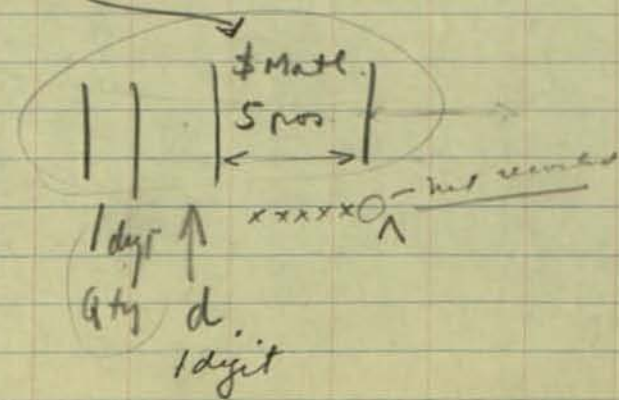 $ Matl.
5 pos
xxxxx0 - not recorded
1 digit
Qty d.
1 digit